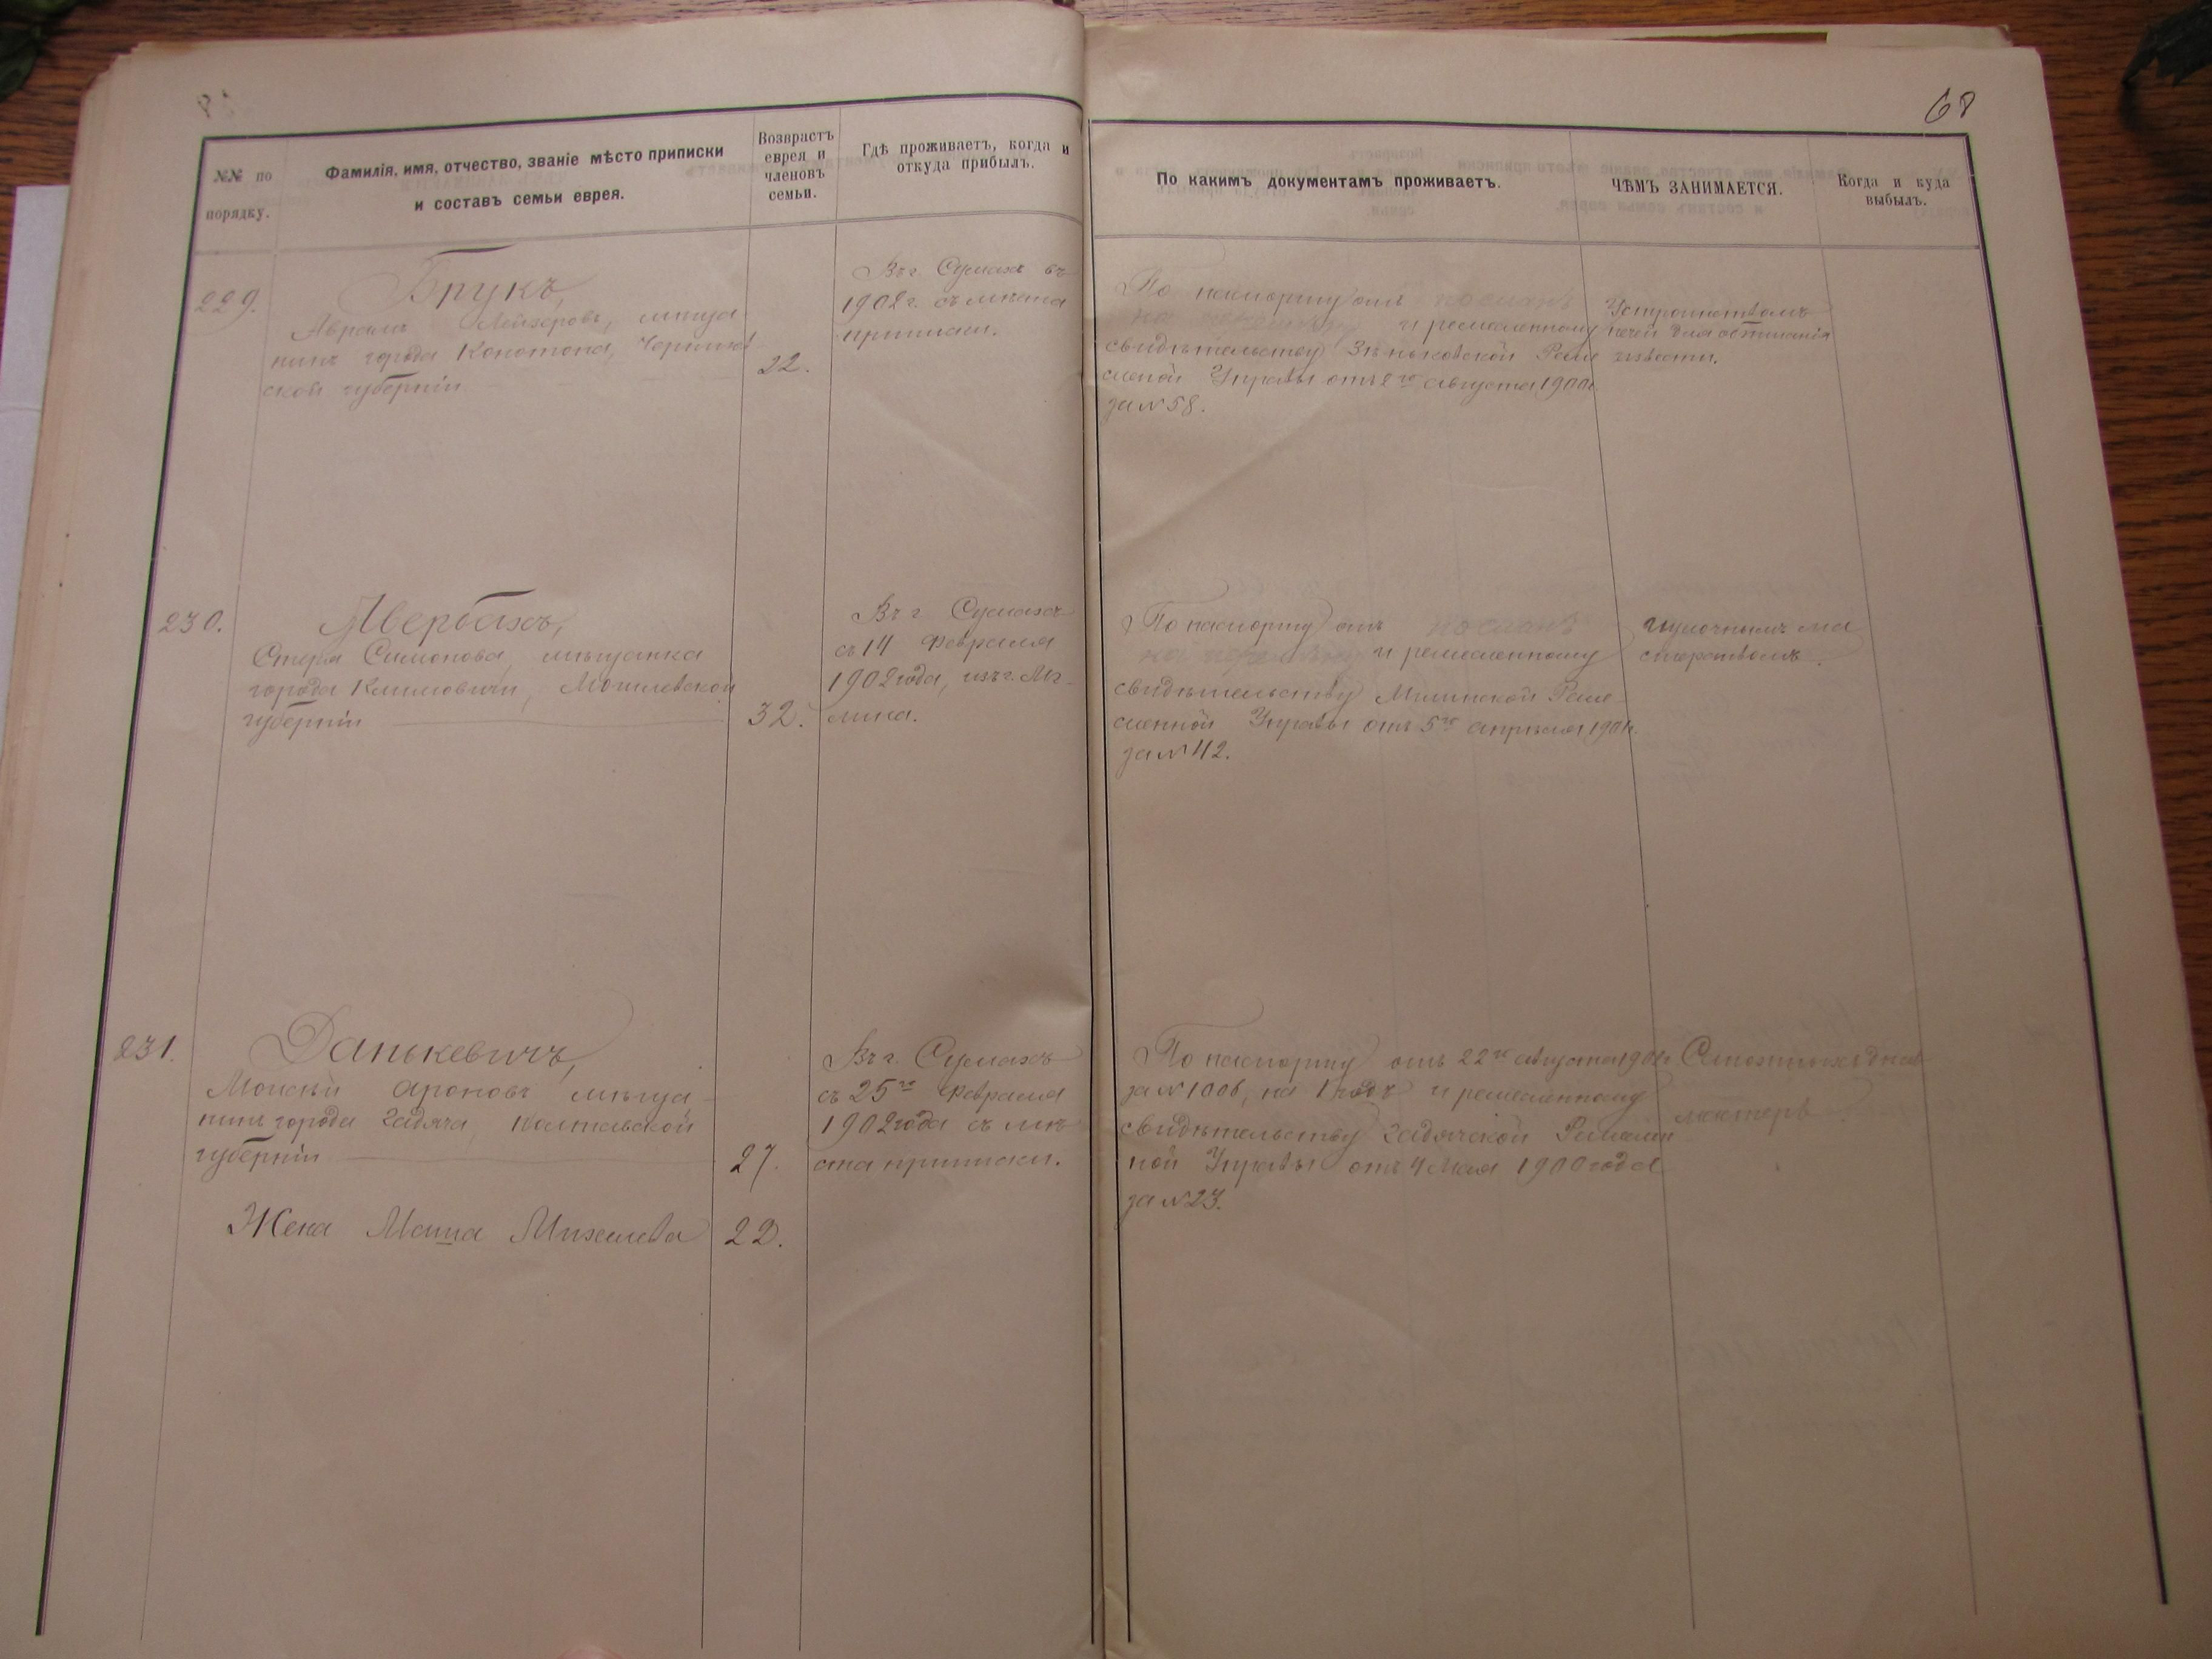 68
№№ по
порядку.
Фамилія, имя, отчество, званіе мѣсто приписки
и составъ семьи еврея.
Возврастъ
еврея и
членовъ
семьи.
Гдѣ проживаетъ, когда и
откуда прибылъ.
По какимъ документамъ проживаетъ.
ЧѢМЪ ЗАНИМАЕТСЯ.
Когда и куда
выбылъ.
229.
Брукъ,
Аврамъ Лейзеровъ, мѣща-
нинъ города Конотопа, Чернигов-
ской губерніи
22.
Въ г. Сумахъ съ
1902 г. съ мѣста
приписки.
По паспорту отъ
и ремесленному
свидѣтельству Зѣньковской Реме
сленой Управы отъ августа 1900г.
за № 58.
Устройствомъ
печей для обжиганія
извести.
230.
Авербахъ,
Симонова, мѣщанка
города Климовичи, Могилевской
губерніи
32.
Въ г. Сумахъ
съ 14 Февраля
1902 года, изъ г. Мг-
лина.
По паспорту отъ послана
и ремесленному
свидѣтельству Мглинской Реме-
сленной Управы отъ 5го апрѣля 1901г.
за № 42.
ма
стерствомъ.
231.
Данькевичъ,
Мойсѣй Ароновъ мѣща-
нинъ города Гадяча, Полтавской
губерніи
27.
Жена Маша Михелева
22.
Въ г. Сумахъ
съ 25го Февраля
1902 года съ мѣ-
ста приписки.
По паспорту отъ 22го августа 1901г
за № 1006, на 1 годъ и ремесленному
свидѣтельству Гадячской Ремеслен
ной Управы отъ 4 Мая 1900 года
за № 23.